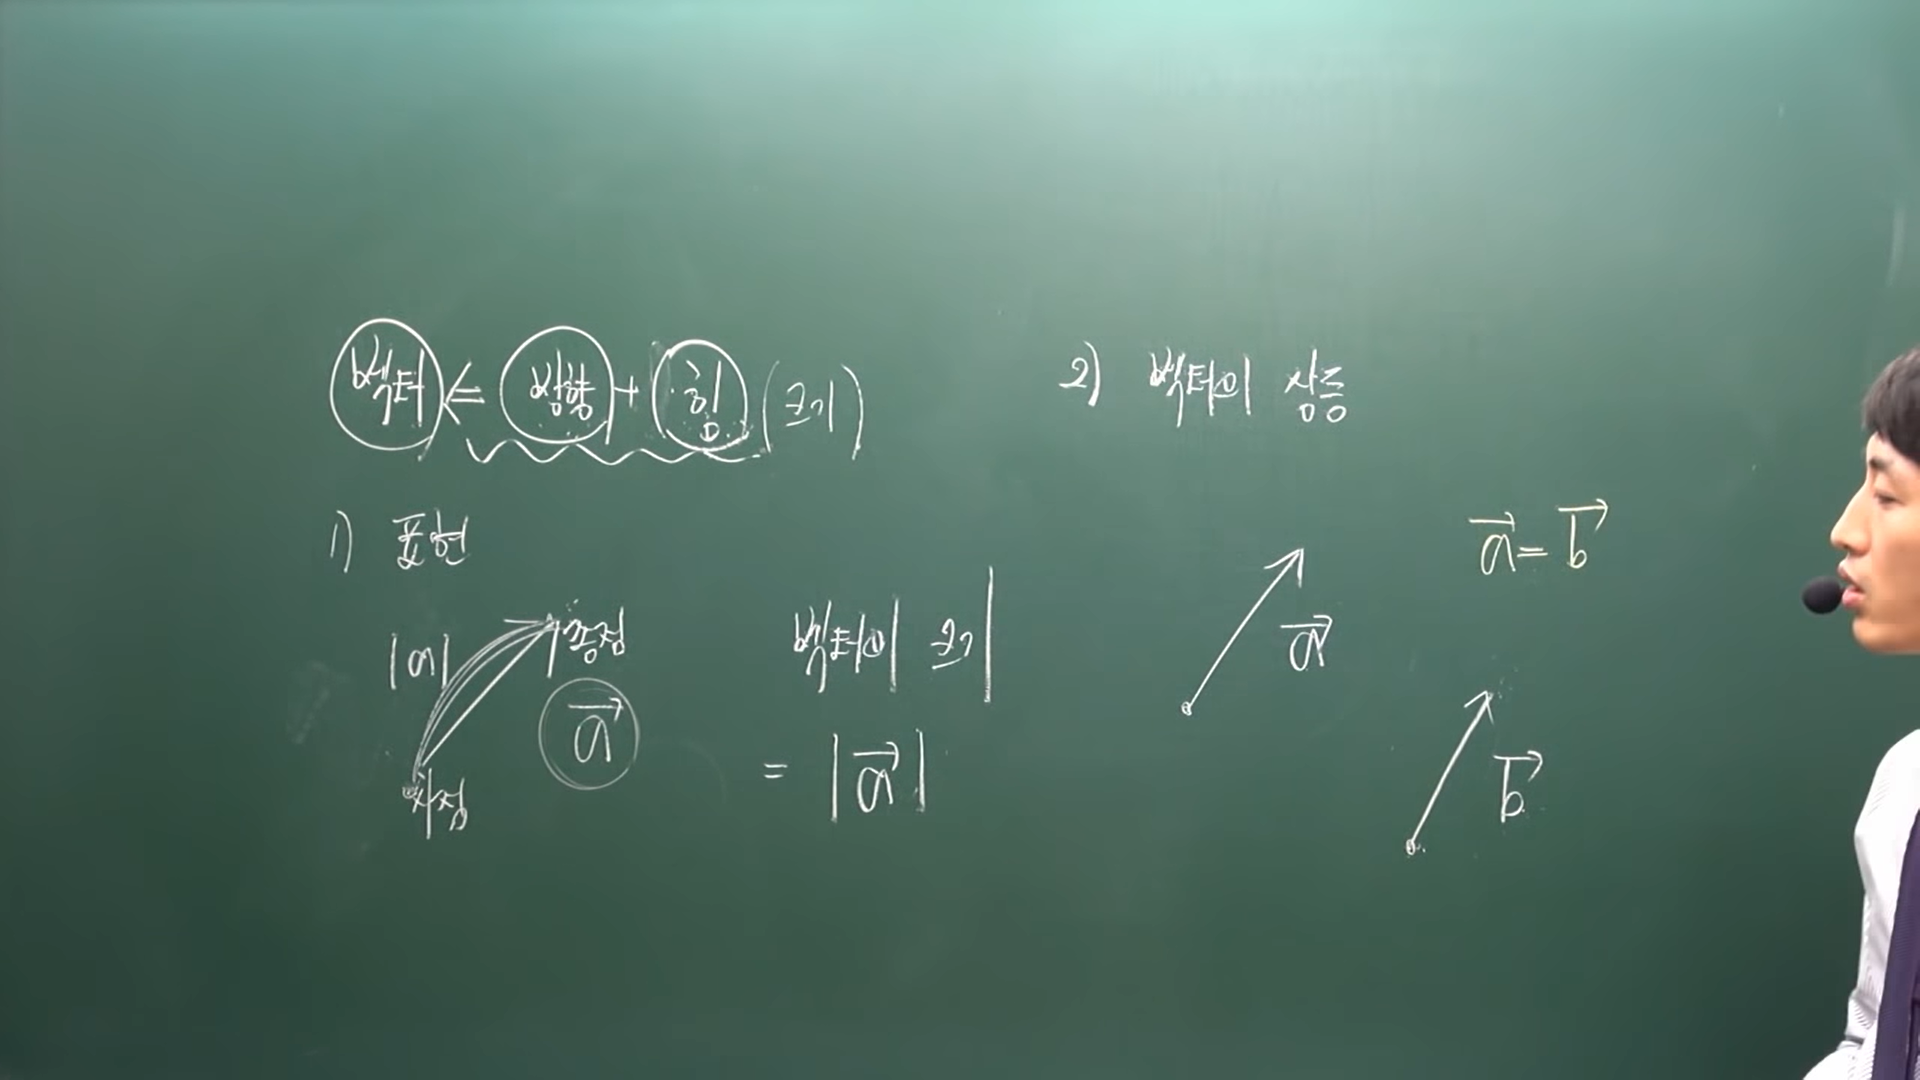 벡터 ⇐ 방향 + 힘 (크기)
1) 표현
|a| 종점
a⃗
시점
벡터의 크기
= |a⃗|
2) 벡터의 상등
a⃗ = b⃗
a⃗
b⃗